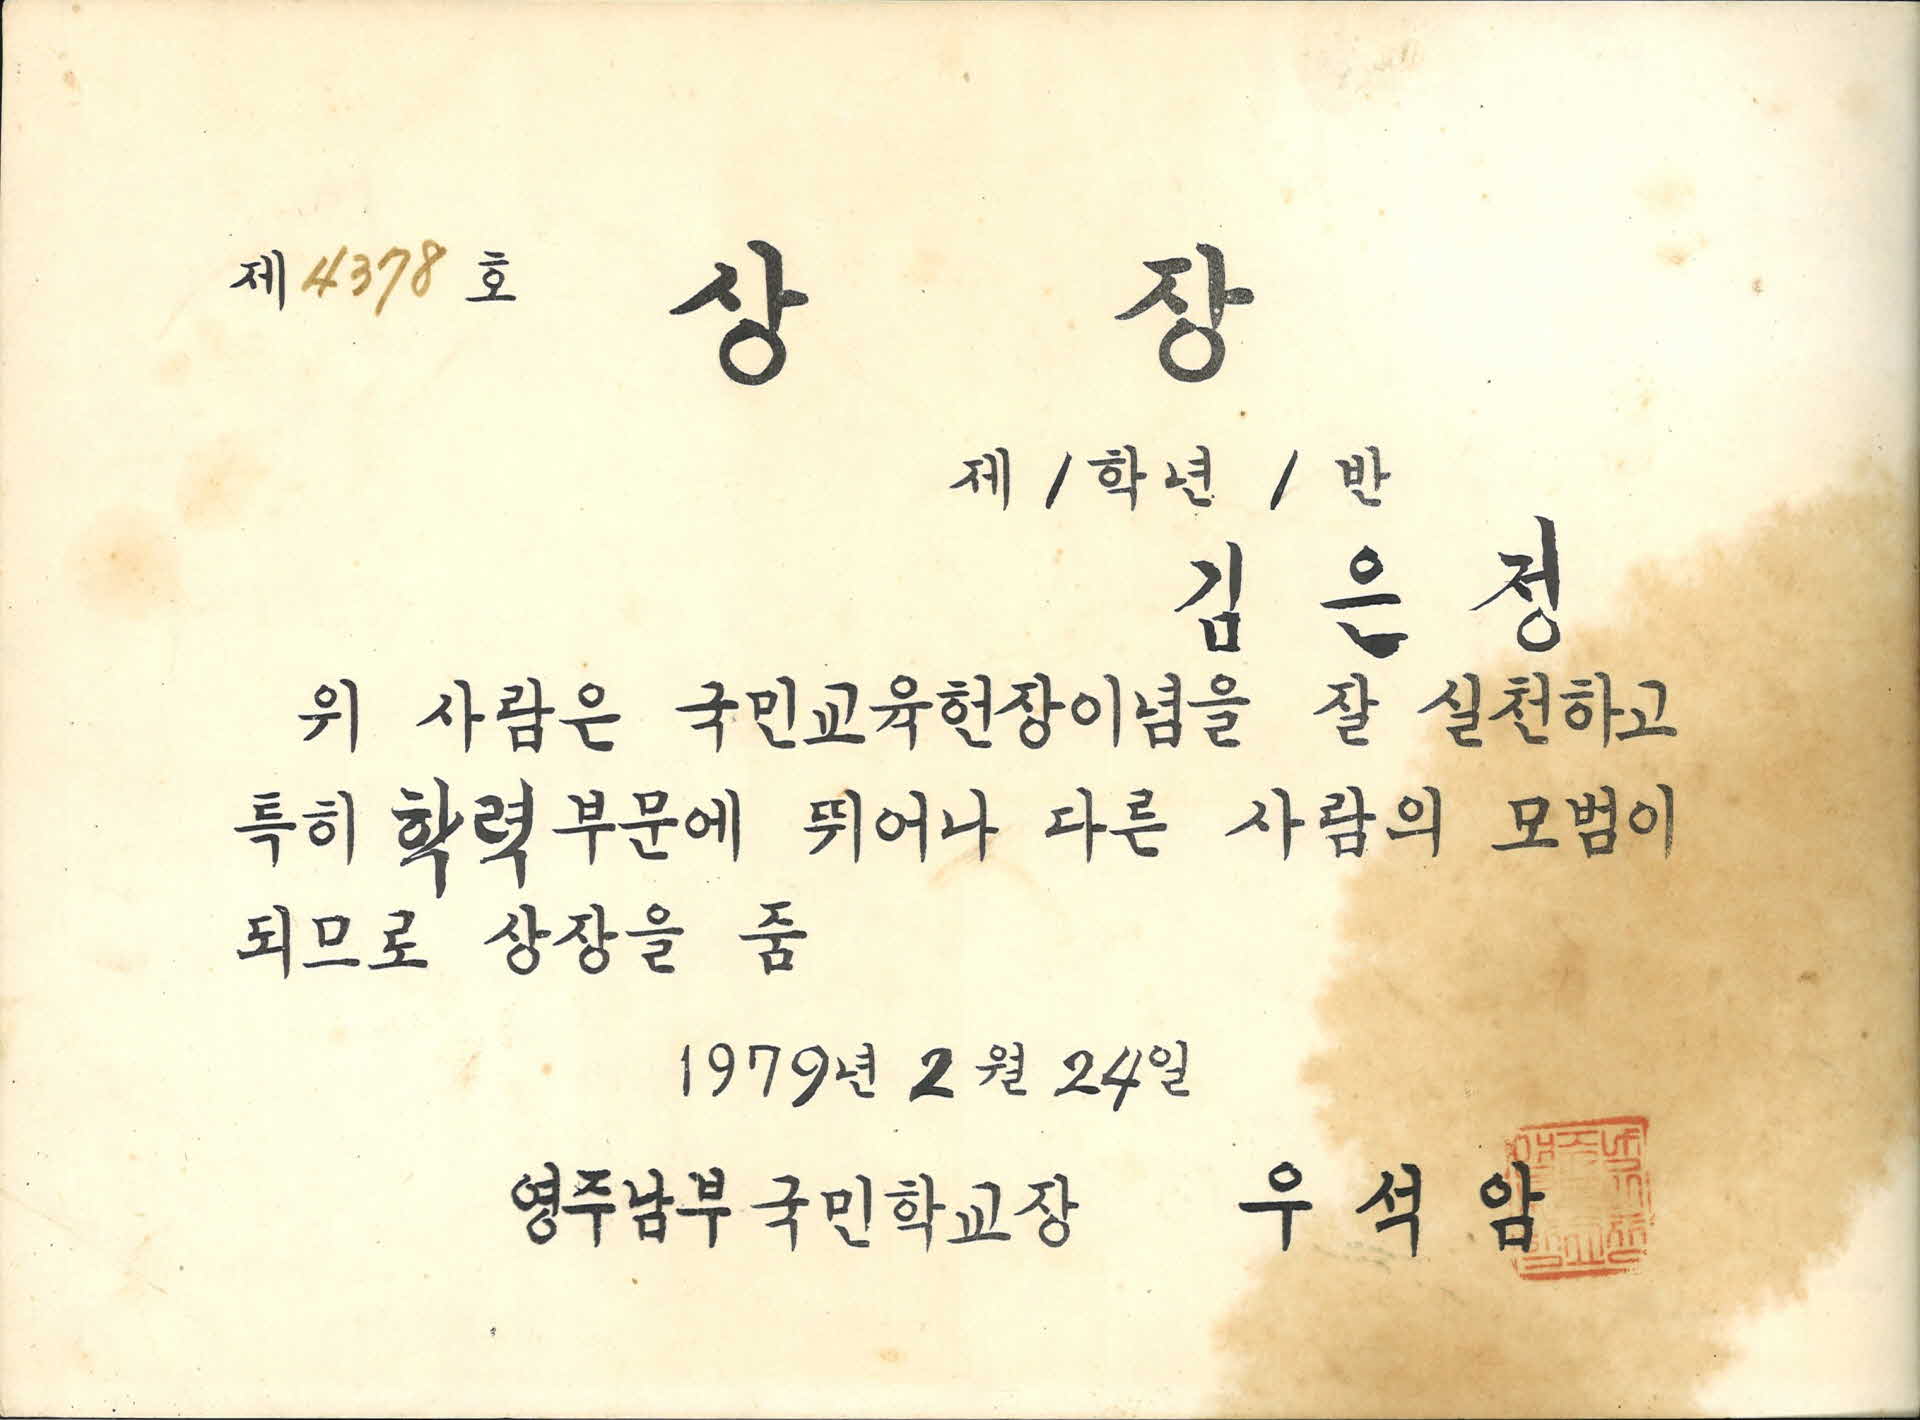 제 4378 호
상 장
제 1 학년 1 반
김 은 정
위 사람은 국민교육헌장이념을 잘 실천하고
특히 학력 부문에 뛰어나 다른 사람의 모범이
되므로 상장을 줌
1979년 2월 24일
영주남부 국민학교장 우 석 암